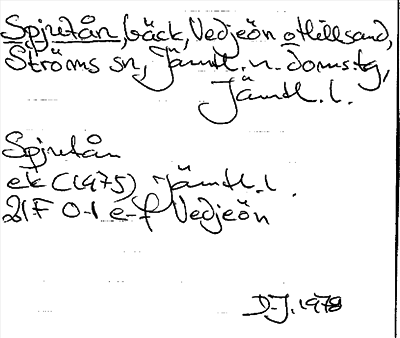 Spjutån, bäck, Vedjeön o Hillsand,
Ströms sn, Jämtl. n. doms:tg,
Jämtl. l.
Spjutån
ek (1975) Jämtl. l.
21F 0-1 e-f Vedjeön
D-J. 1978